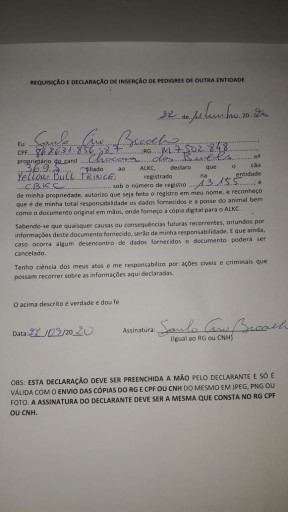 REQUISIÇÃO E DECLARAÇÃO DE INSERÇÃO DE PEDIGREE DE OUTRA ENTIDADE
22 de setembro 20 20
Eu
CPF RG M7502848
proprietário do canil Chacara dos nº
3693 filiado ao ALKC, declaro que o cão
Yellow Bull registrado na entidade
CBKC sob o número de registro 13155, e
de minha propriedade, autorizo que seja feito o registro em meu nome, e reconheço
que é de minha total responsabilidade os dados fornecidos e a posse do animal bem
como o documento original em mãos, onde forneço a cópia digital para o ALKC
Sabendo-se que quaisquer causas ou consequências futuras recorrentes, oriundos por
informações deste documento fornecido, serão de minha responsabilidade. E que ainda,
caso ocorra algum desencontro de dados fornecidos o documento poderá ser
cancelado.
Tenho ciência dos meus atos e me responsabilizo por ações cíveis e criminais que
possam recorrer sobre as informações aqui declaradas.
O acima descrito é verdade e dou fé
Data: 22/09/2020 Assinatura:
(Igual ao RG ou CNH)
OBS: ESTA DECLARAÇÃO DEVE SER PREENCHIDA A MÃO PELO DECLARANTE E SÓ É
VÁLIDA COM O ENVIO DAS CÓPIAS DO RG E CPF OU CNH DO MESMO EM JPEG, PNG OU
FOTO. A ASSINATURA DO DECLARANTE DEVE SER A MESMA QUE CONSTA NO RG CPF
OU CNH.